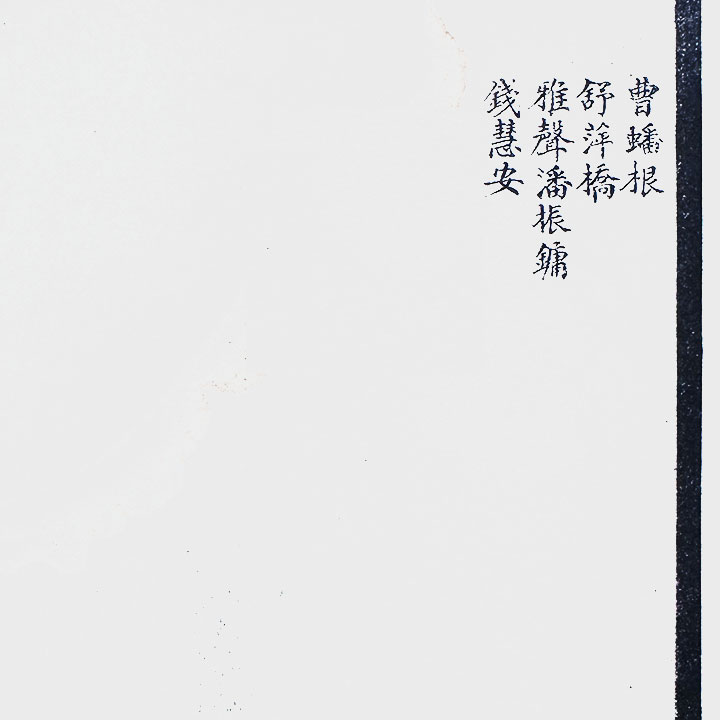 曹蟠根
舒萍橋
雅聲潘振鏞
錢慧安